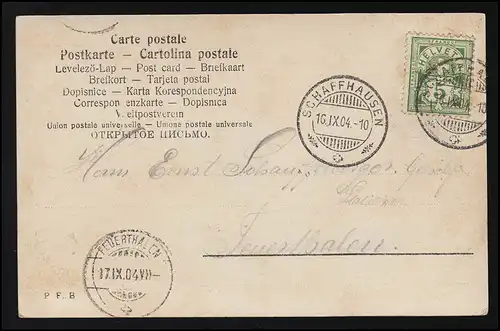 Carte postale
Postkarte – Cartolina postale
Levelező-Lap — Post card — Briefkaart
Brefkort — Tarjeta postal
Dopisnice — Karta Korespondencyjna
Correspon enzkarte — Dopisnica
Weltpostverein
Union postale universelle — Unione postale universale
ОТКРЫТОЕ ПИСЬМО.
HELVETIA
5
SCHAFFHAUSEN
16.IX.04.-10
Hans Ernst
Feuerthalen.
FEUERTHALEN
17.IX.04.VII-
P F. B